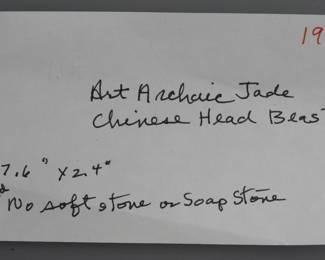 19
Art Archaic Jade
Chinese Head Beast
7.6" x 2.4"
No soft stone or Soap Stone